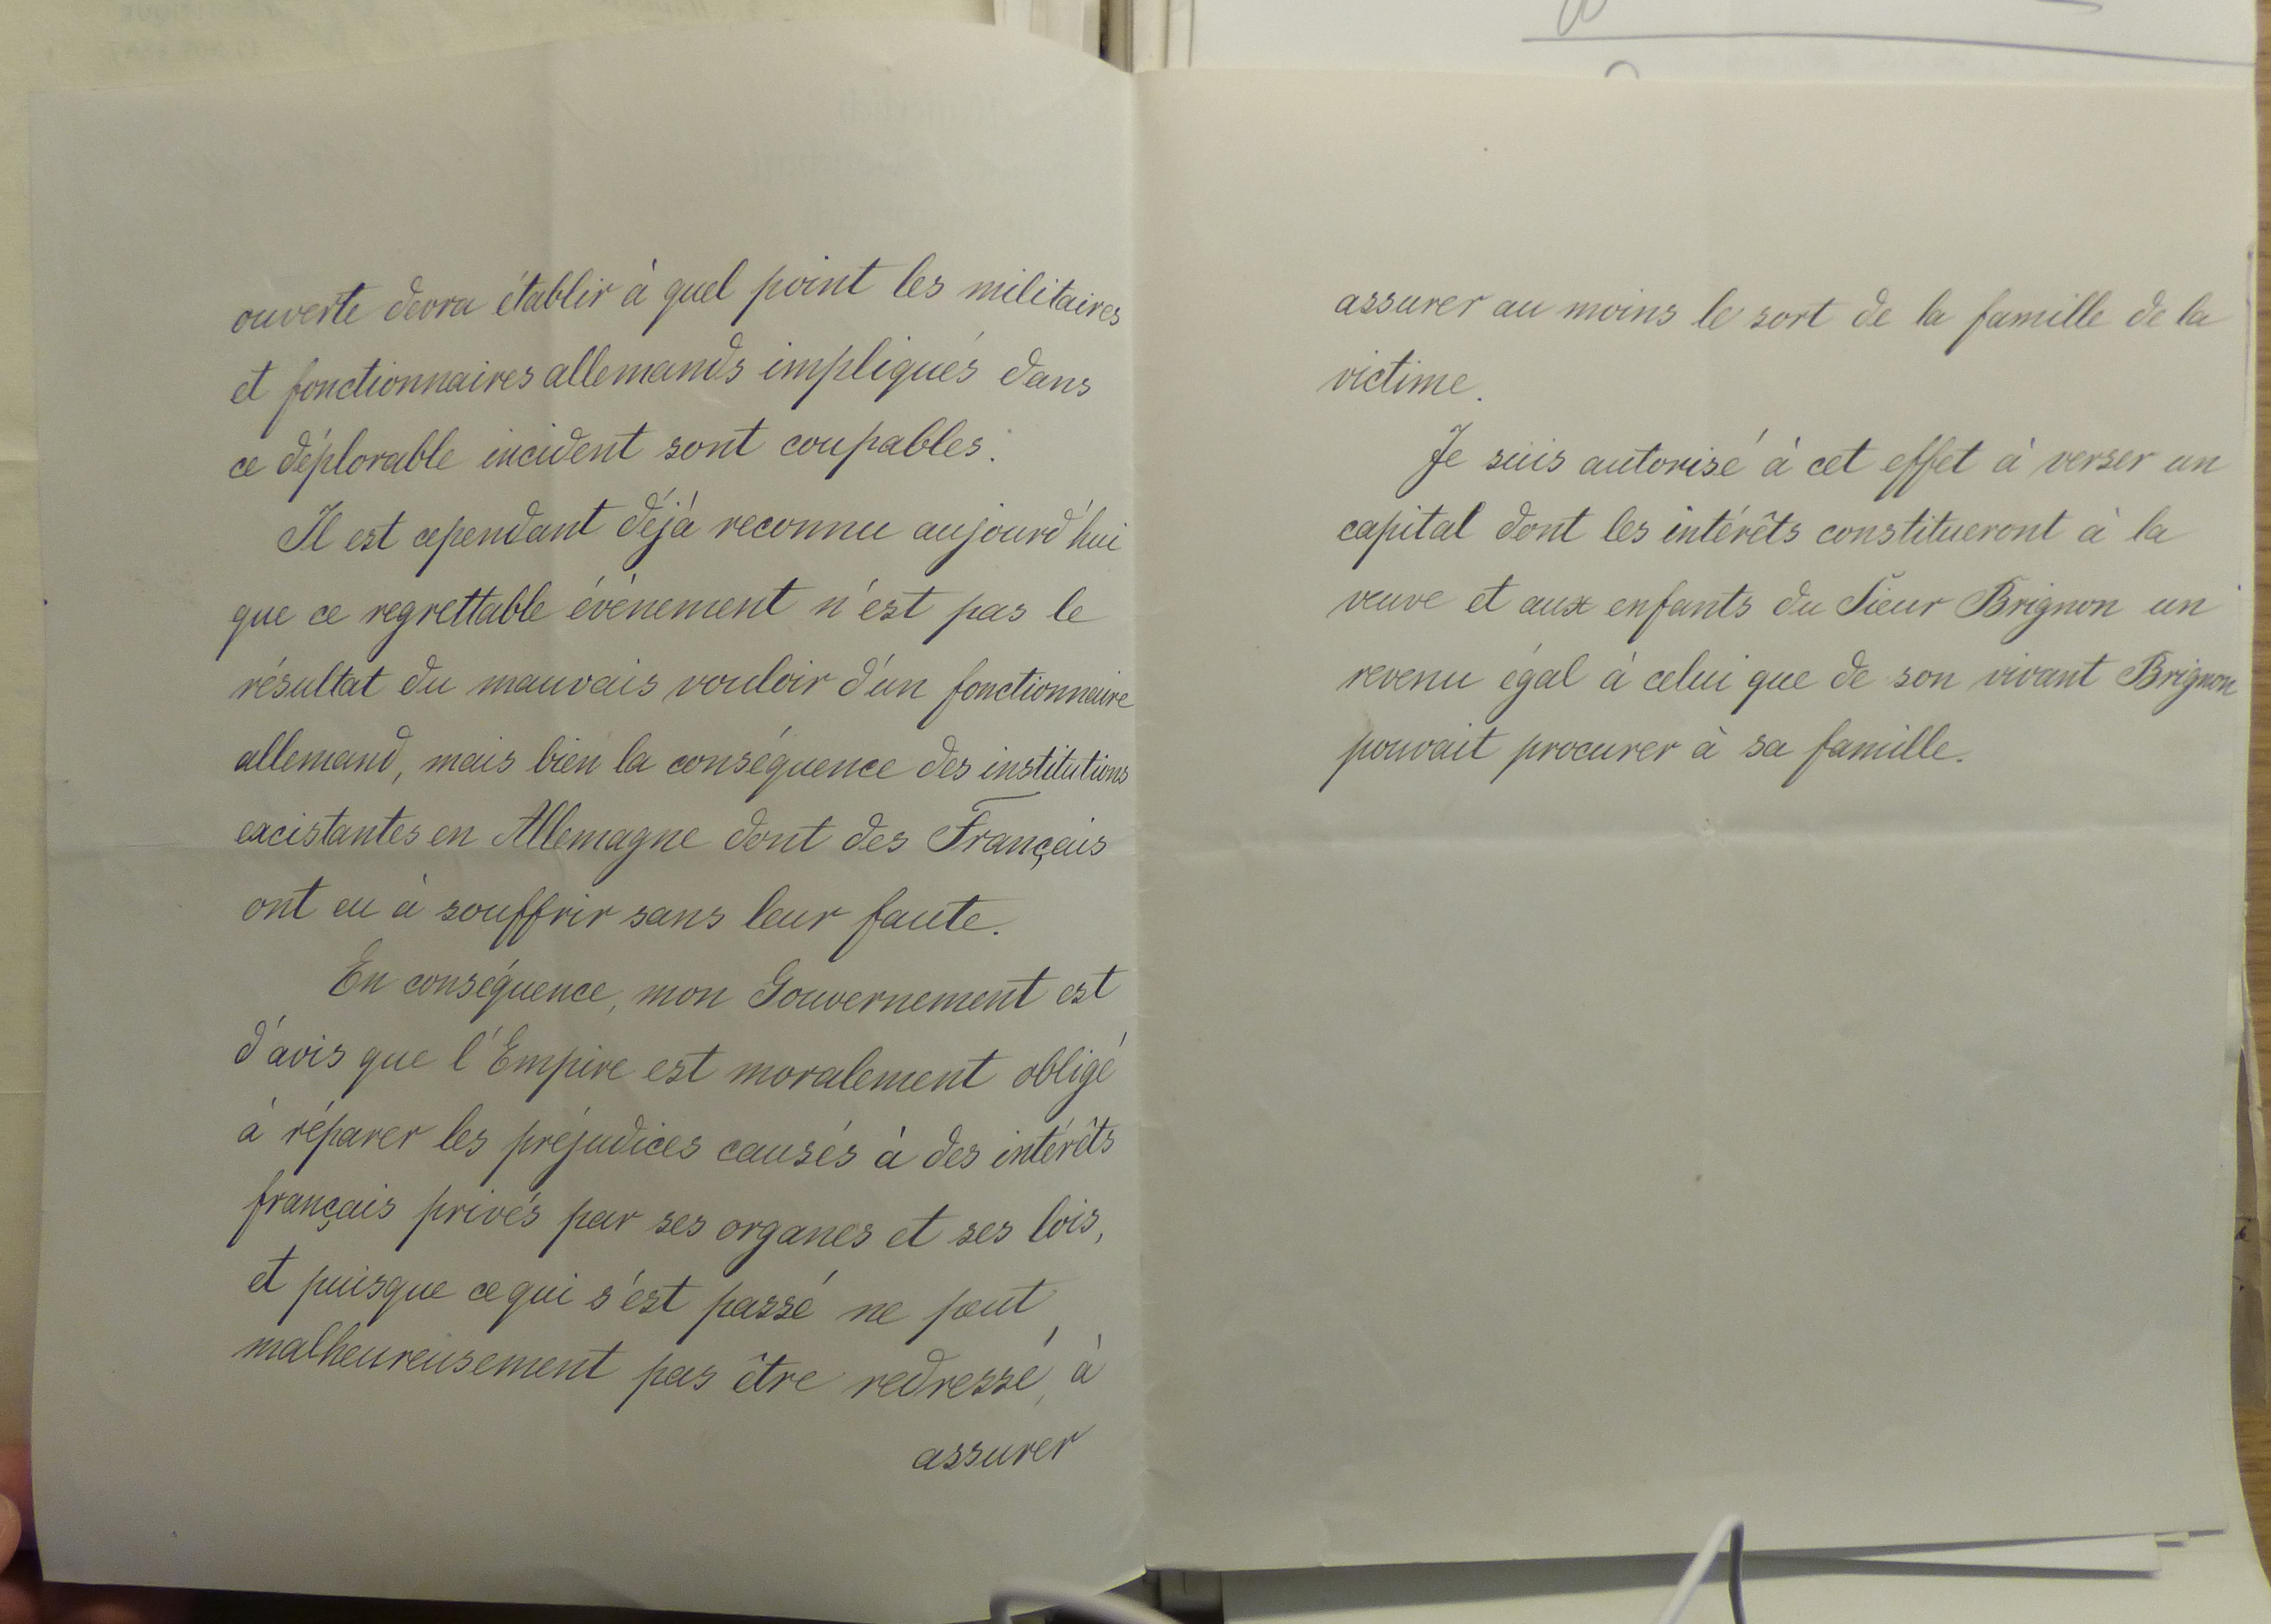 ouverte devra établir à quel point les militaires
et fonctionnaires allemands impliqués dans
ce déplorable incident sont coupables.
Il est cependant déjà reconnu aujourd'hui
que ce regrettable événement n'est pas le
résultat du mauvais vouloir d'un fonctionnaire
allemand, mais bien la conséquence des institutions
excistantes en Allemagne dont des Français
ont eu à souffrir sans leur faute.
En conséquence, mon Gouvernement est
d'avis que l'Empire est moralement obligé
à réparer les préjudices causés à des intérêts
français privés par ses organes et ses lois,
et puisque ce qui s'est passé ne peut
malheureusement pas être redressé, à
assurer
assurer au moins le sort de la famille de la
victime.
Je suis autorisé à cet effet à verser un
capital dont les intérêts constitueront à la
veuve et aux enfants du Sieur Brignon un
revenu égal à celui que de son vivant Brignon
pouvait procurer à sa famille.